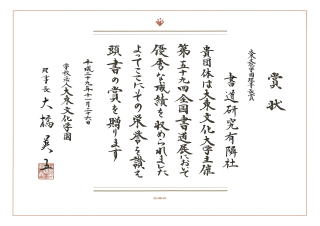 賞状
書道研究有隣社
貴団体は大東文化大学主催
第五十九回全国書道展において
優秀な成績を収められました
よってここにその栄誉を讃え
頭書の賞を贈ります
平成二十九年十一月二十六日
学校法人大東文化学園
理事長 大橋英五